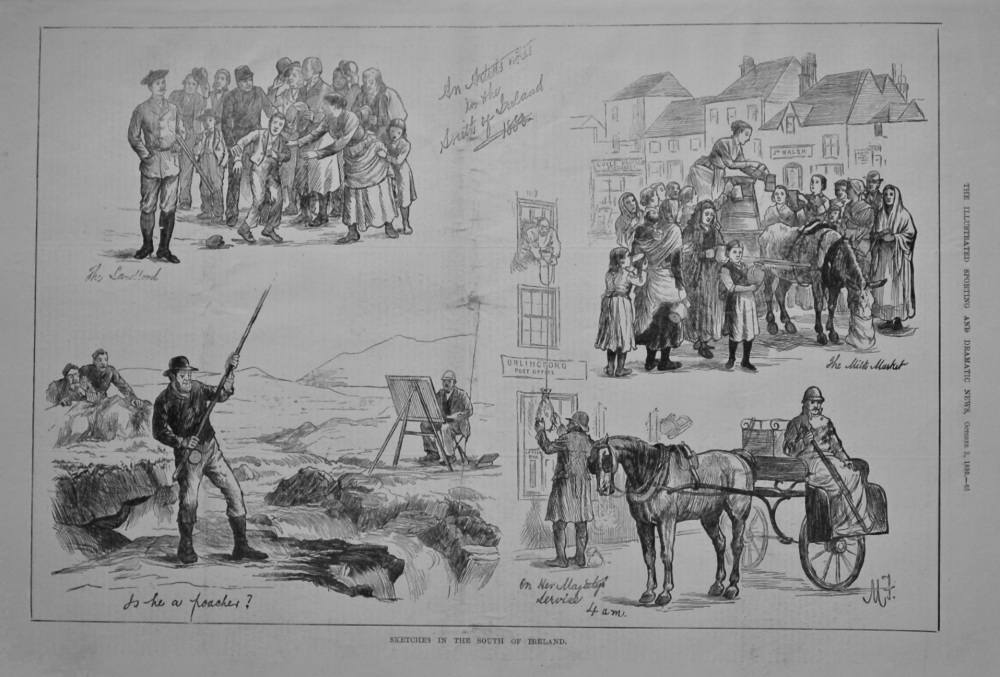 An Artists
in the
South of Ireland
1880
The Landlord
Jno WALSH
The Milk Market
URLINGFORD
POST OFFICE
Is he a poacher?
On Her Majestys
Service
4 a.m.
SKETCHES IN THE SOUTH OF IRELAND.
THE ILLUSTRATED SPORTING AND DRAMATIC NEWS, OCTOBER 2, 1880.—